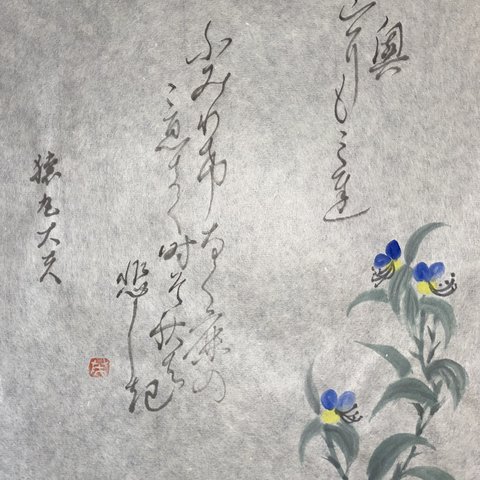 奥
山にもみち
ふみわ希なく鹿の
こ恵きく時曽秋者
悲し起
猿丸大夫